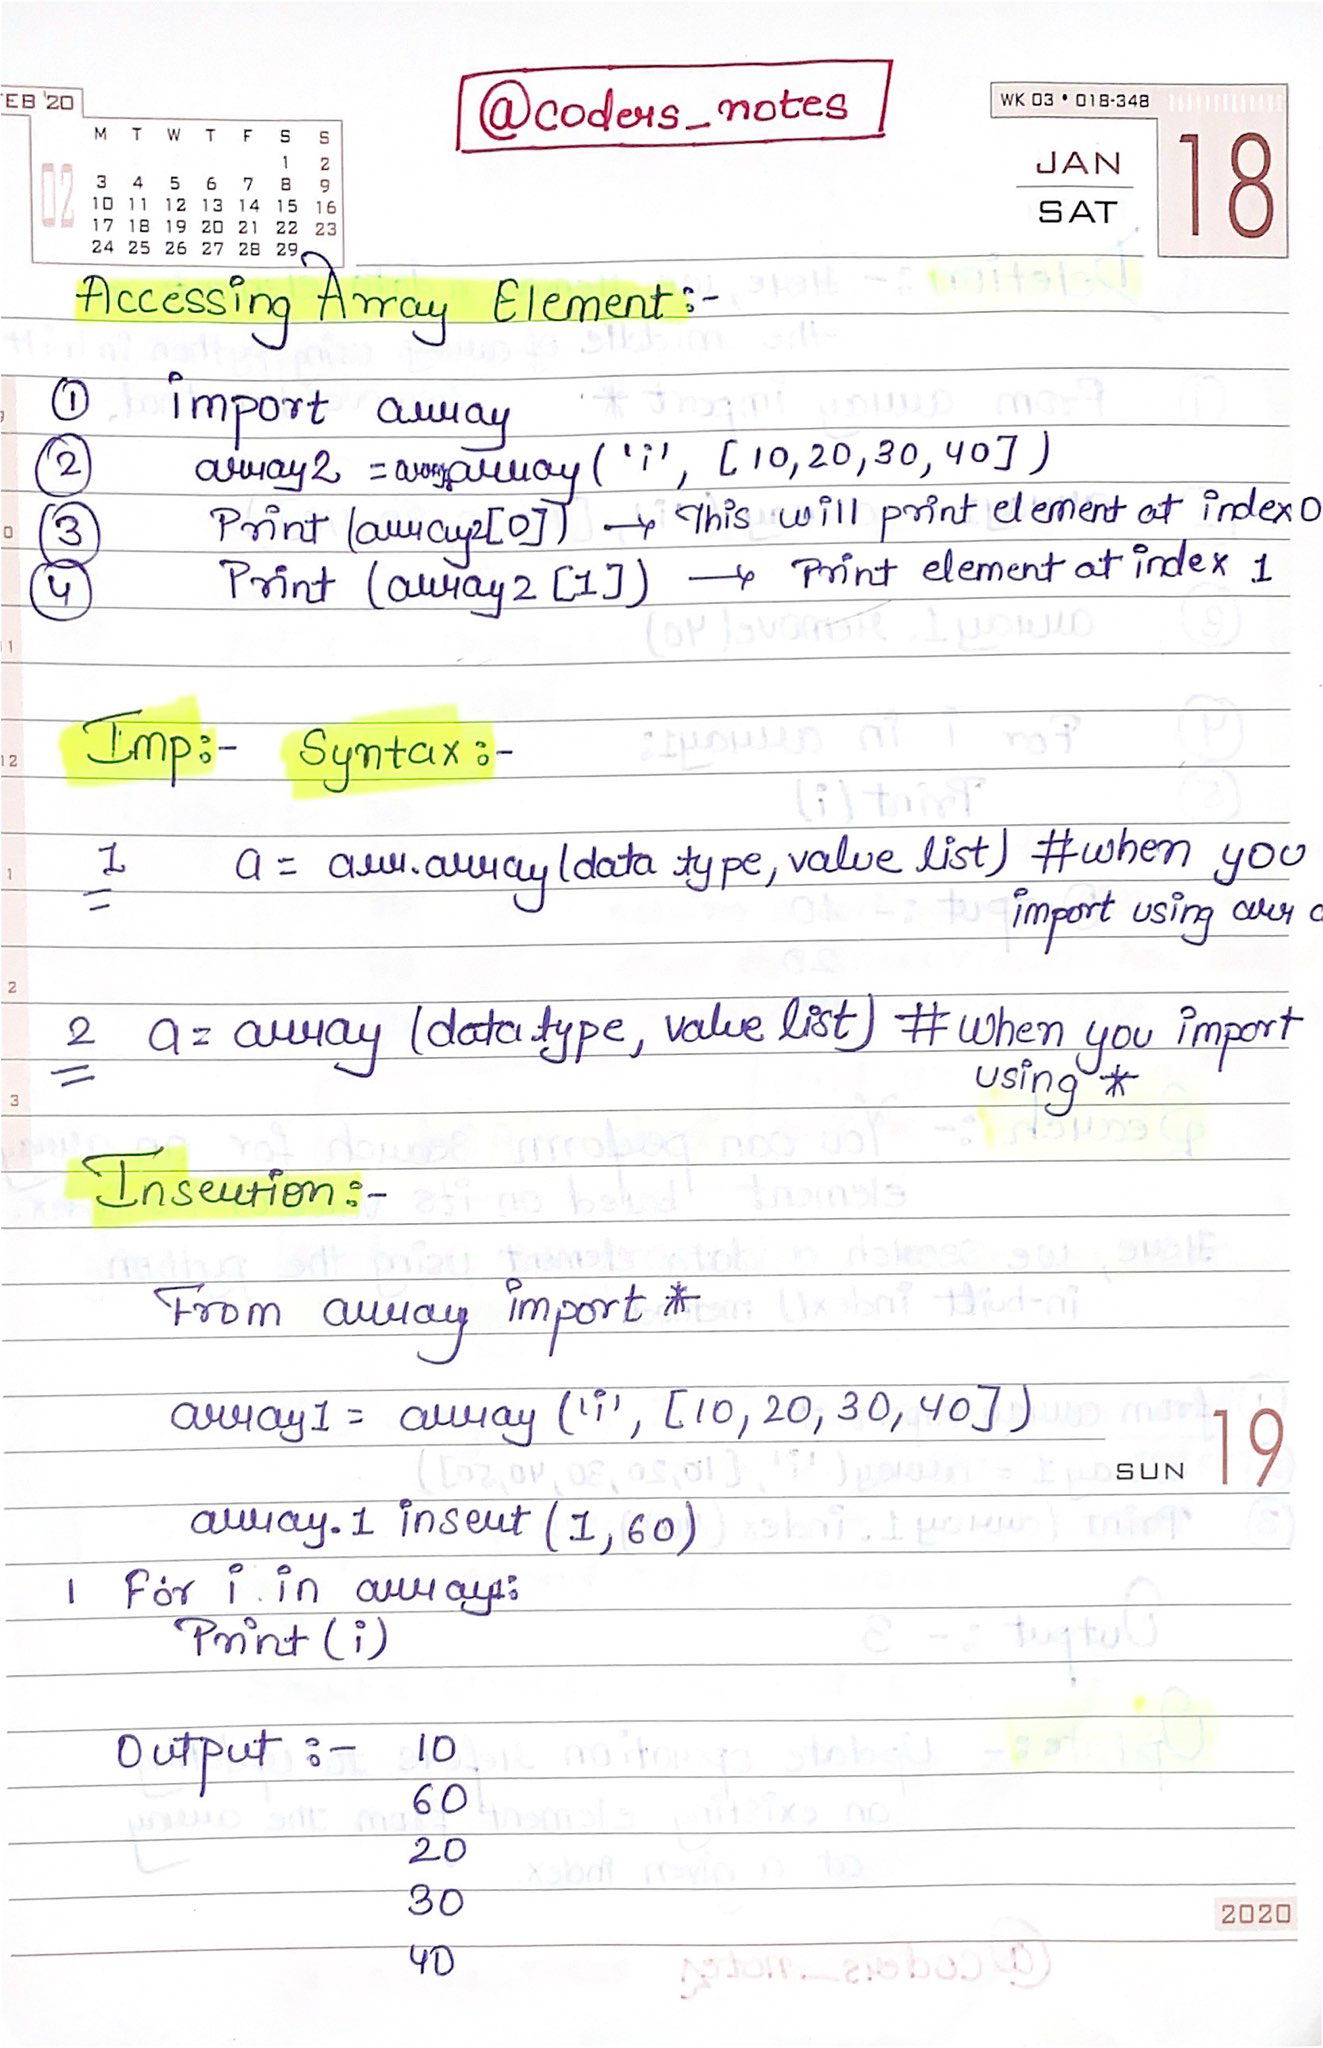 @coders_notes
FEB '20
02
M T W T F S S
1 2
3 4 5 6 7 8 9
10 11 12 13 14 15 16
17 18 19 20 21 22 23
24 25 26 27 28 29
WK 03 • 018-348
JAN
SAT
18
Accessing Array Element:-
① import array
② array2 = array.array('i', [10,20,30,40])
③ Print (array2[0]) → This will print element at index 0
④ Print (array2 [1]) → Print element at index 1
Imp:- Syntax:-
1 a = arr.array(data type, value list) #when you
import using arr
2 a= array (data type, value list) #when you import
using *
Insertion:-
From array import *
array1 = array ('i', [10,20,30,40])
SUN 19
array.1 insert (1,60)
1 For i in array1:
Print (i)
Output :- 10
60
20
30
40
2020